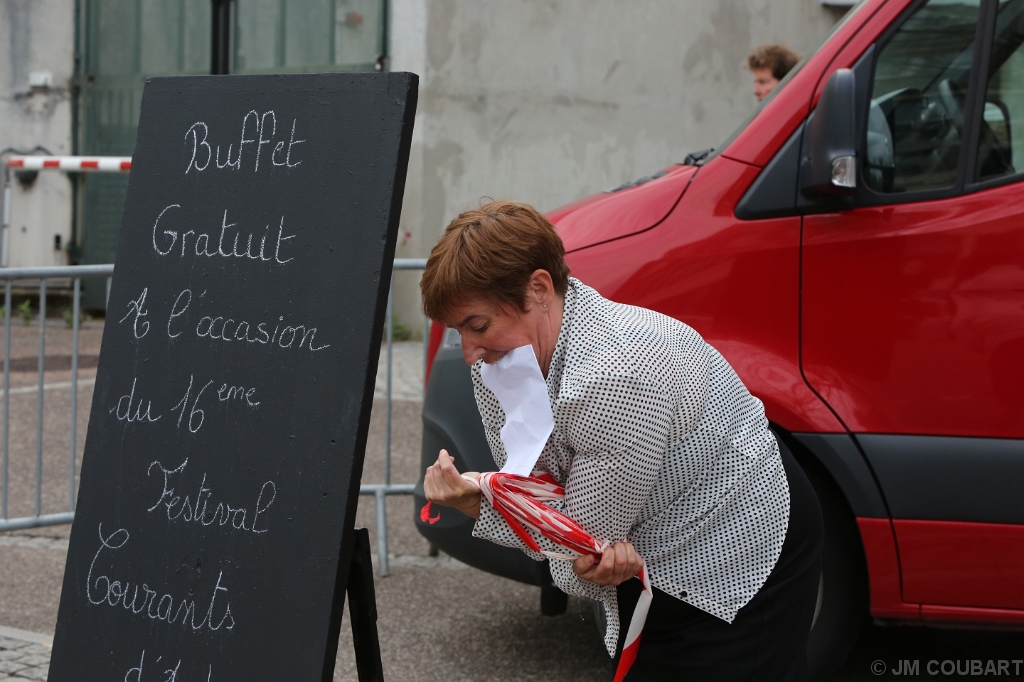 Buffet
Gratuit
A l'occasion
du 16eme
Festival
Courants
© JM COUBART